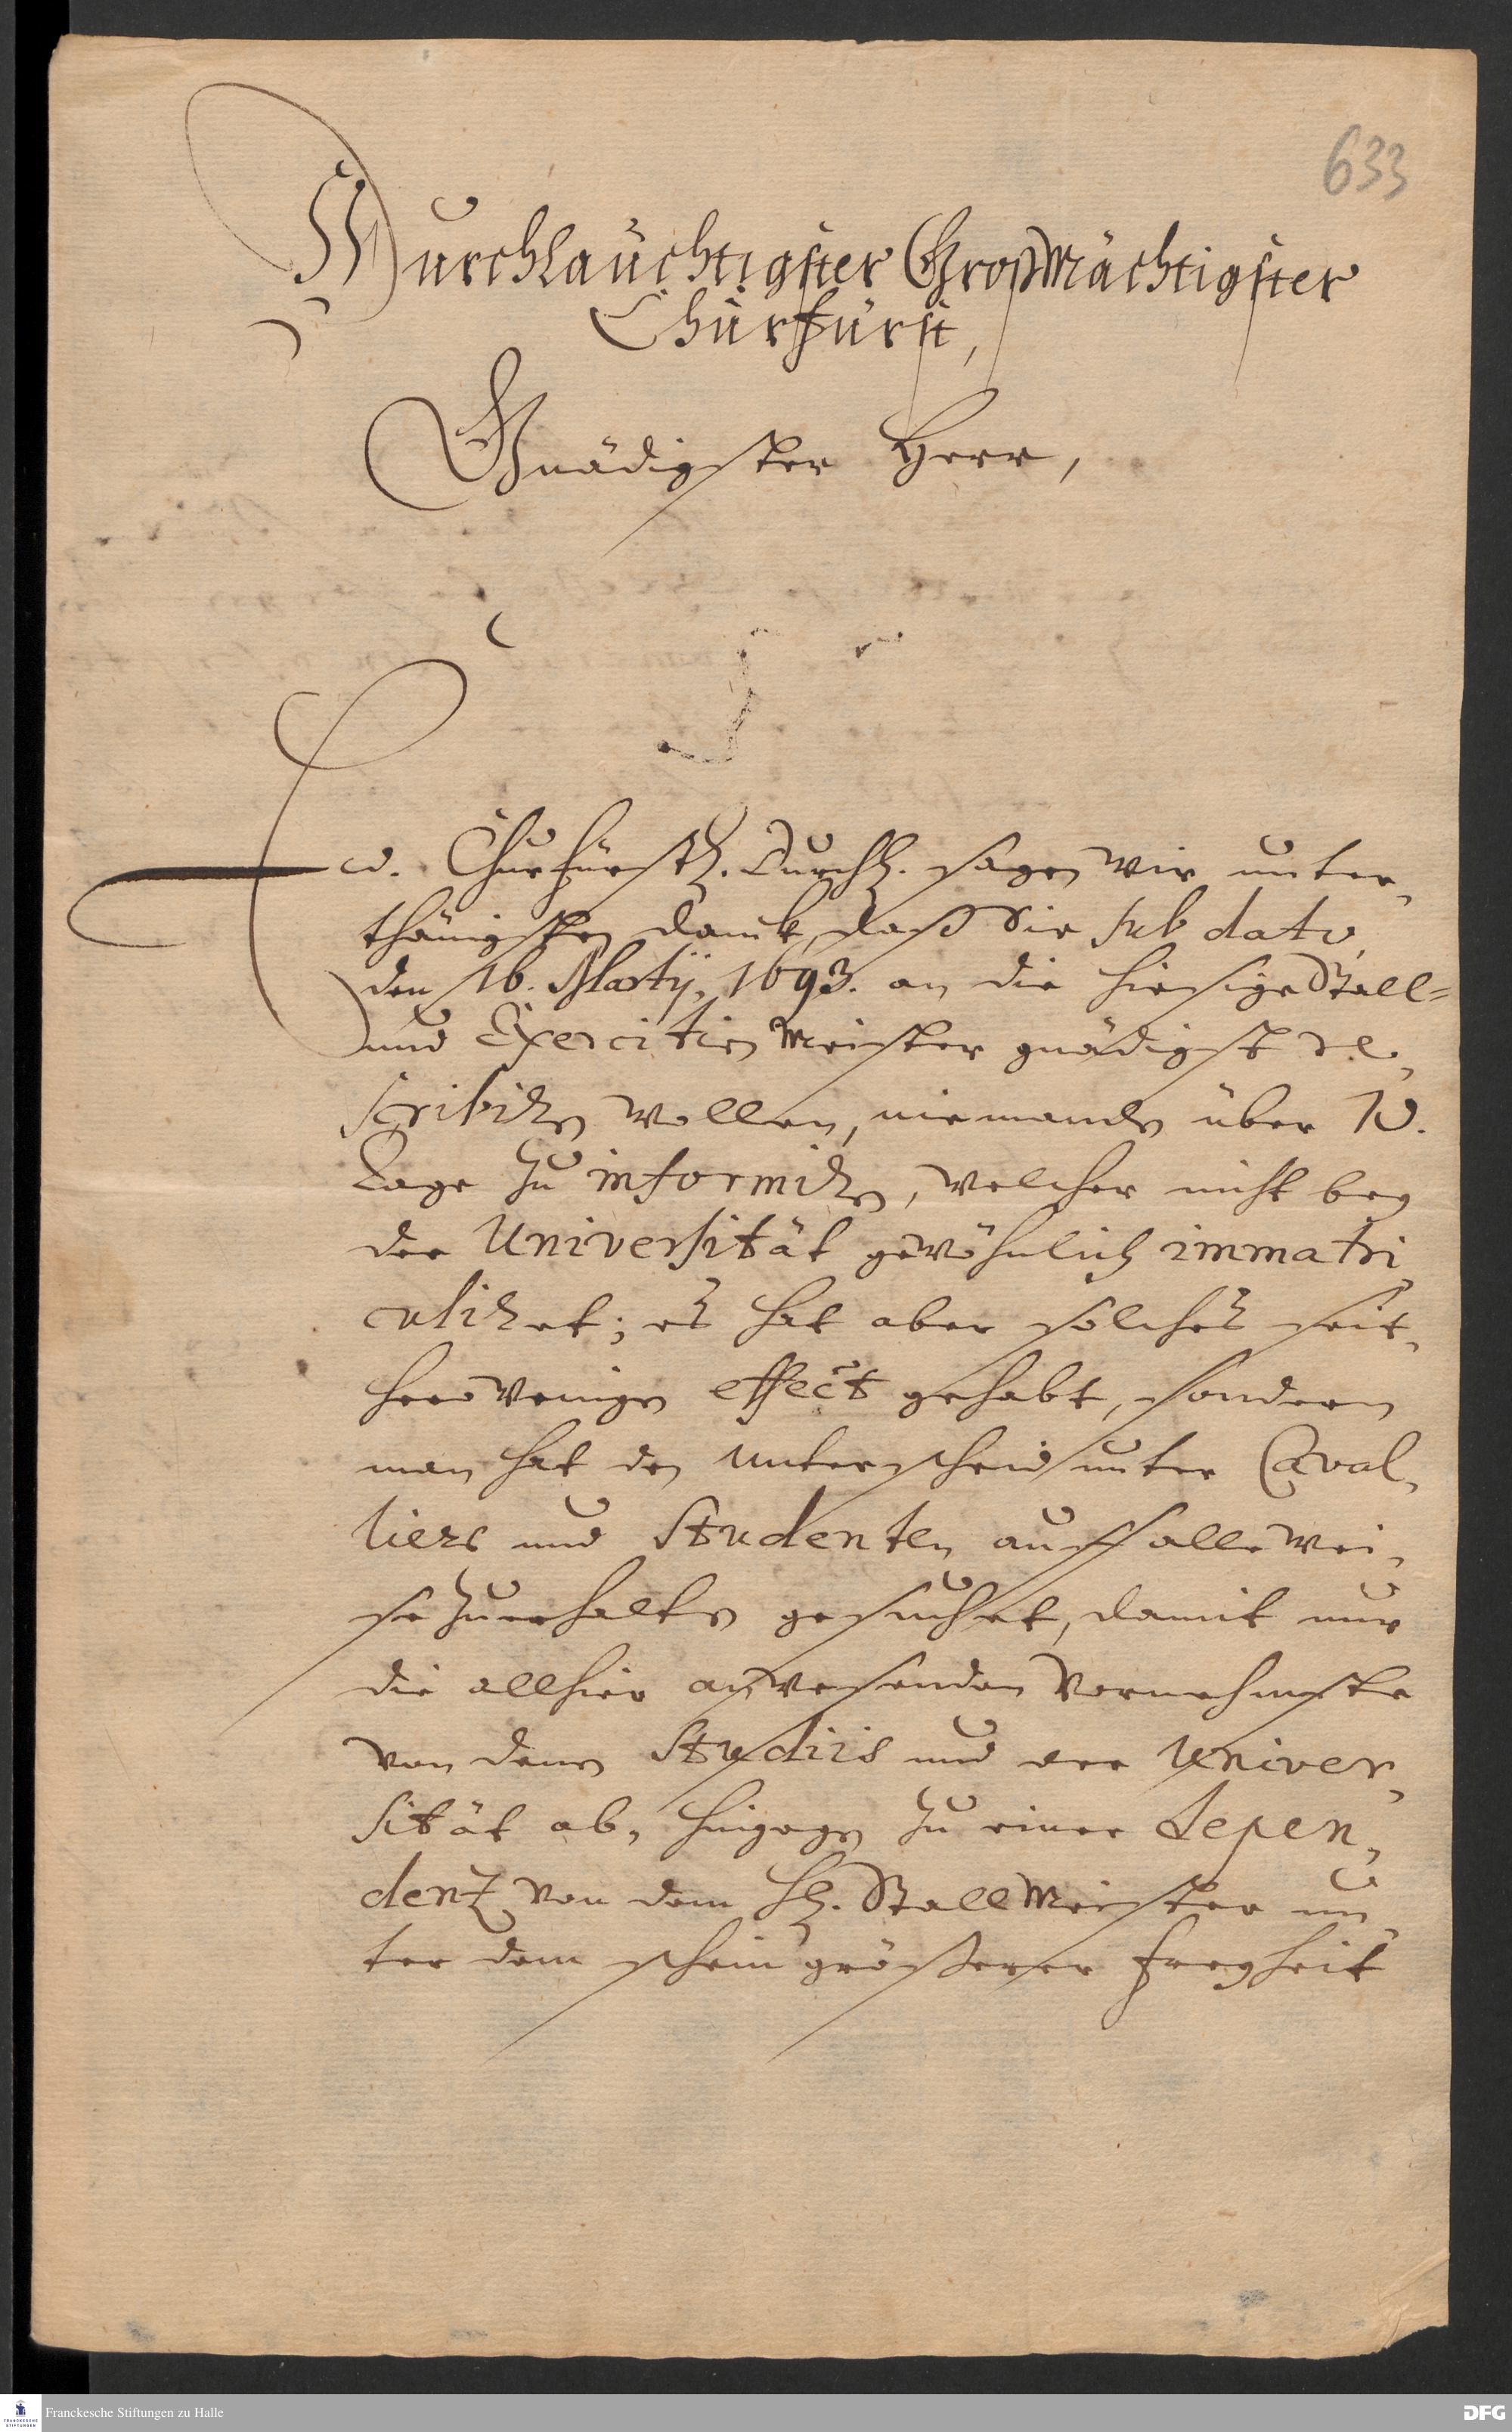 633
Durchlauchtigster GroßMächtigster
Churfürst,
Gnädigster Herr,
Ew. Churfürstl. Durchl. sagen wir unter,
thänigsten danck, daß Sie sub dato,
den 16. Martij, 1693. an die hiesige Stall=
und Exercitien Meister gnädigst re,
scribiren wollen, niemanden über 10.
Tage zu informiren, welcher nicht bey
der Universität gewöhnlich immatri,
culiret; es hat aber solches seit,
hero wenigen effect gehabt, sondern
man hat den unterscheid unter Caval,
liers und Studenten auff alle wei,
se zu erhalten gesuchet, damit nur
die allhier anwesenden Vornehmste
von denen Studiis und der Univer,
sität ab, hingegen zu einer depen,
denz von dem H. StallMeister un,
ter dem schein größerer freyheit
Franckesche Stiftungen zu Halle
DFG